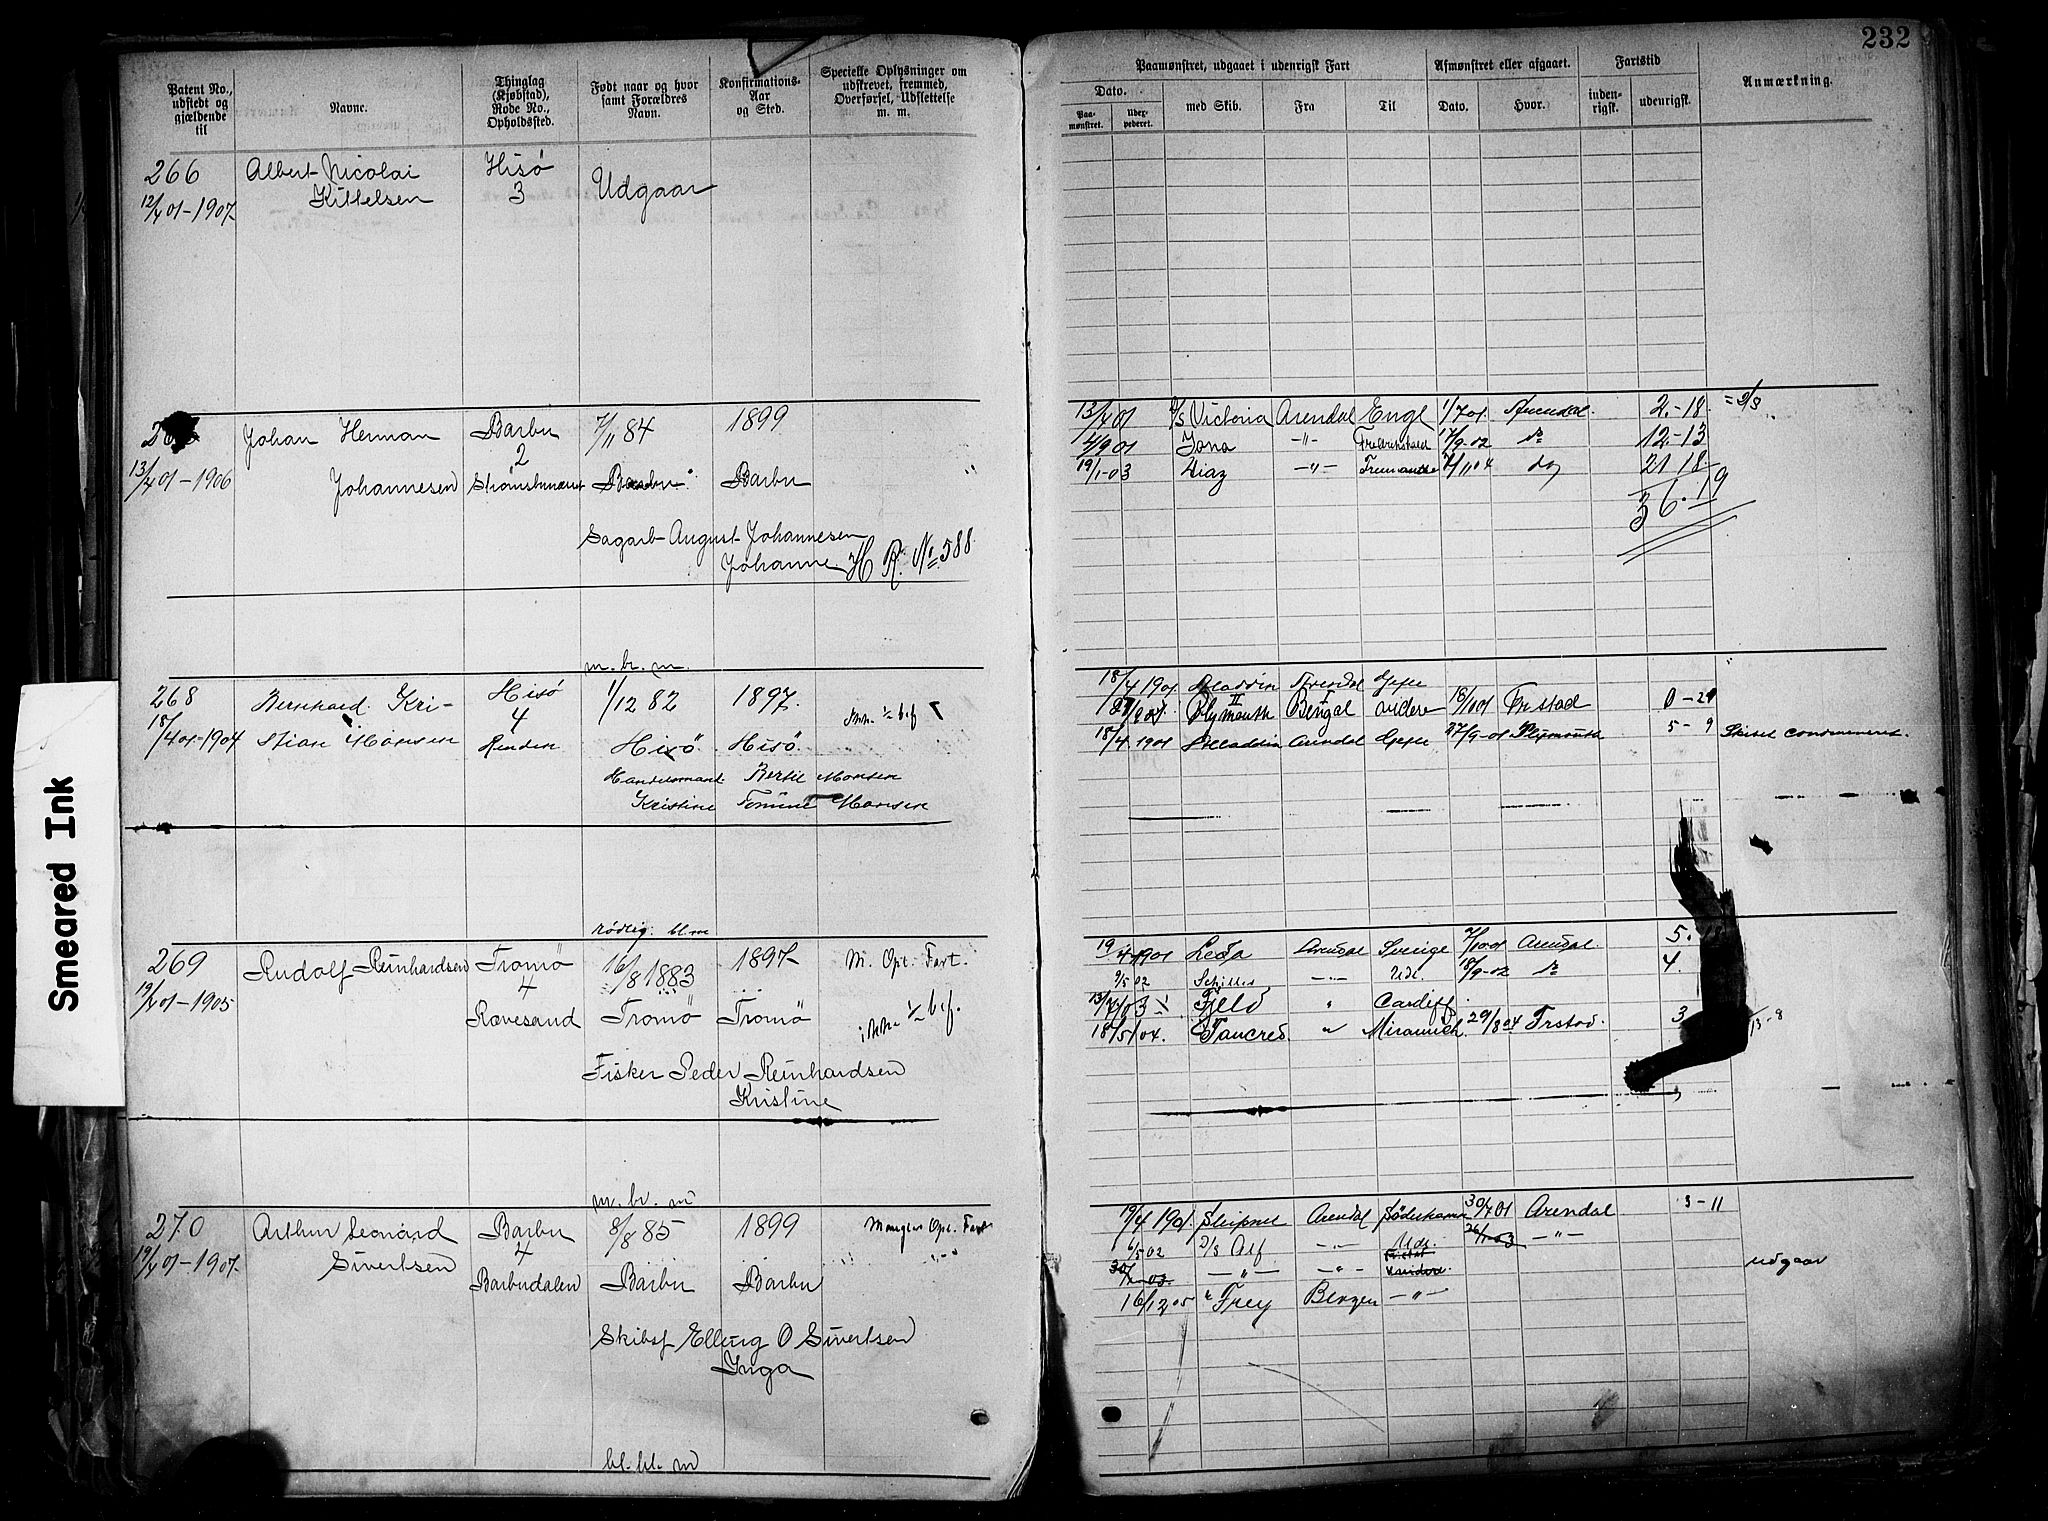 232
Patent No., udstedt og gjældende til
Navne.
Thinglag (Kjøbstad), Rode No., Opholdssted.
Født naar og hvor samt Forældres Navn.
Konfirmations-Aar og Sted.
Specielle Oplysninger om udskrevet, fremmed, Overførsel, Udslettelse m. m.
Paamønstret, udgaaet i udenrigsk Fart
Afmønstret eller afgaaet.
Fartstid
Anmærkning.
Dato.
med Skib.
Fra
Til
Dato.
Hvor.
inden-rigsk.
udenrigsk.
Paa-mønstret.
266 Albert Nicolai Hisö
12/4 01-1907 Kittelsen 3 Udgaar
Johan Herman Barbu 7/11 84 1899
2
13/4 01-1906 Johannesen Barbu Barbu
August Johannesen
Johanne H R. No 588
13/4 01 Victoria Arendal Engl 1/7 01 Arendal. 2.-18.
4/9 01 Jona -"- 12.-13
19/1-03 -"- 21 18
36.19
m. br. m.
268 Bernhard Kri- Hisö 1/12 82 1897.
18/4 01-1904 stian Monsen 4 Hisö Hisö.
Handelsmand Bertil Monsen
Kristine Tomine Monsen
18/4 1901 Aladdin Arendal Gefle
Plymouth II 18/1 01 Frstad 0-29
18/4 1901 Alladdin Arendal Gefle 27/9-01 Plymouth 5-9
rödlig. bl. m
269 Rudolf Reinhardsen Tromö 16/8 1883 1897 M. Opt. Fart.
19/4 01-1905 4
Rævesand Tromö Tromö
Fisker Peder Reinhardsen
Kristine
19/4 1901 Leda Arendal Sverige 7/10 01 Arendal. 5.
9/5 02 Schiller -"- Udl 18/9-02 4.
Fjeld " Cardiff
18/5 04. Tancred. " Miramich. 29/8 04 Frstad. 3
13-8
m. br. m
270 Arthur Leonard Barbu 8/8 85 1899 Mangler Opt. Fart
19/4 01-1907 Sivertsen 4
Barbudalen Barbu Barbu
Skibsf Elling O Sivertsen
Inga
19/4 1901 Sleipner Arendal Söderhamn 30/7 01 Arendal 3-11
6/5 02 Alf -"- Udl. 26/1-03 -"-
-"- -"- udgaar
16/12 05 " Frey Bergen -"-
bl. bl. m
Smeared Ink